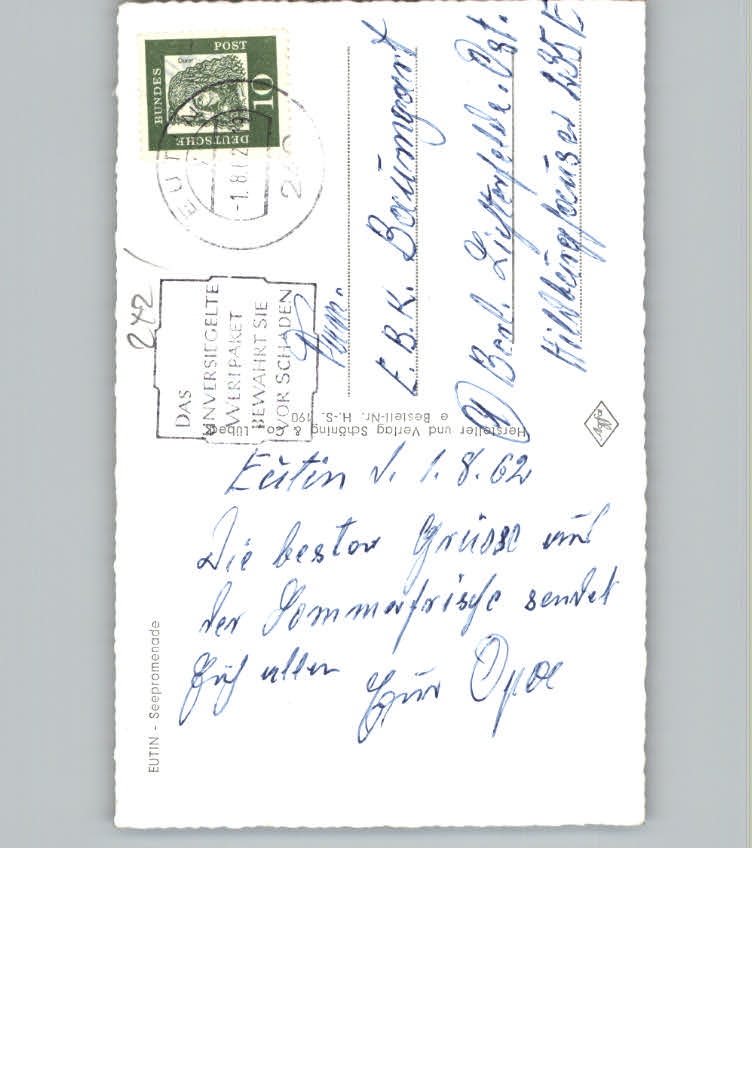 EUTIN - Seepromenade
Eutin d. 1.8.62
Die besten Grüsse aus
der Sommerfrische sendet
Euch allen Euer Opa
Hersteller und Verlag Schöning & Co., Lübeck
e Bestell-Nr. H.-S. 190
Agfa
242
DAS
UNVERSIEGELTE
WERTPAKET
BEWAHRT SIE
VOR SCHADEN
EUTIN
-1.8.62
DEUTSCHE
BUNDES
POST
10
Dürer
Fam.
E.B.K. Baumgart
1 Berl. Lichterfelde. Ost.
Hildburghauser 235 E